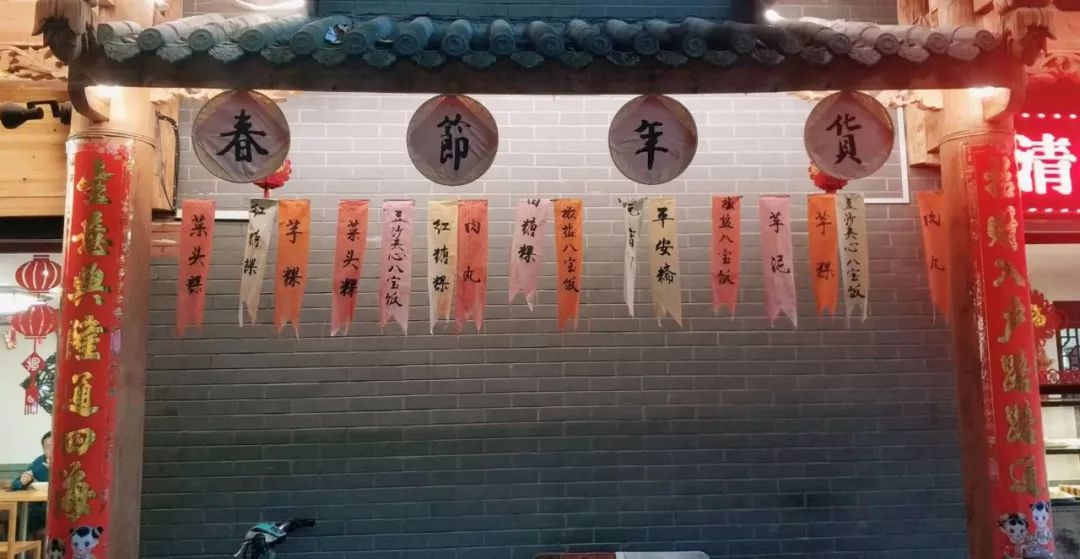 春節年貨
菜头粿
红糖粿
芋粿
菜头粿
豆沙夹心八宝饭
红糖粿
肉丸
糖粿
椒盐八宝饭
平安橋
椒盐八宝饭
芋泥
芋粿
豆沙夹心八宝饭
肉丸
生意興隆通四海
招财入户路路通
清